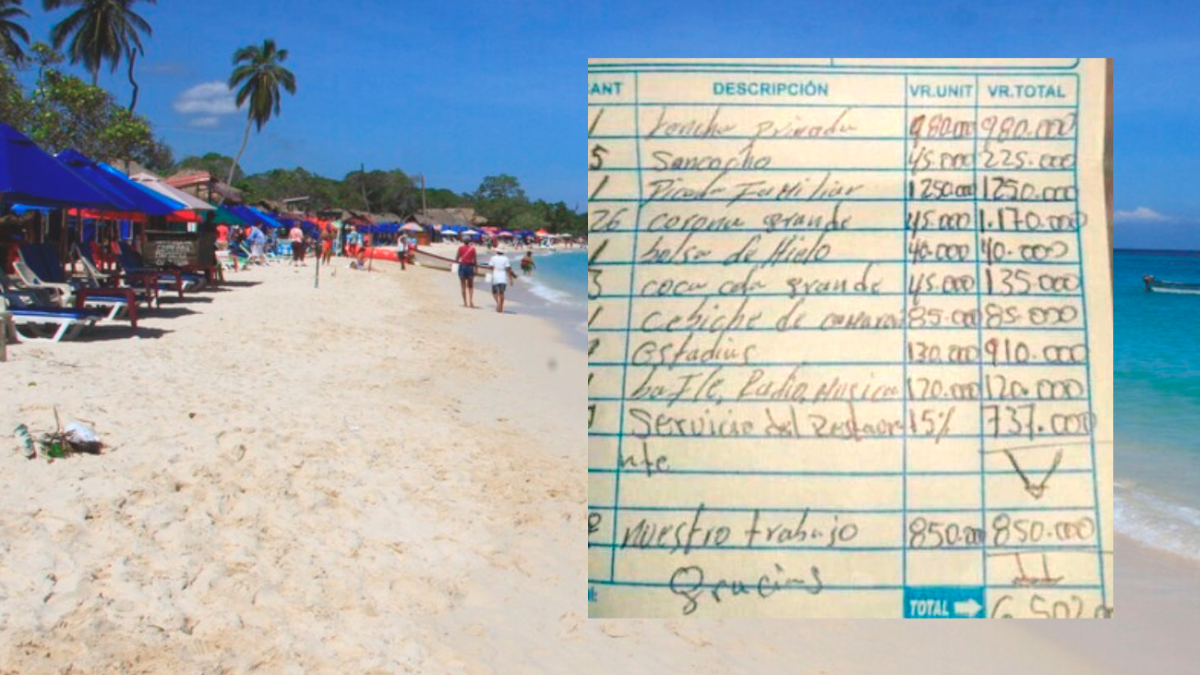 CANT DESCRIPCIÓN VR.UNIT VR.TOTAL
1 Lancha privada 980.000 980.000
5 Sancocho 45.000 225.000
1 Picada Familiar 1250.000 1250.000
26 corona grande 45.000 1.170.000
1 bolsa de Hielo 40.000 40.000
3 coca cola grande 45.000 135.000
1 Cebiche de 85.000 85.000
estadius 130.000 910.000
1 bafle, Radio, Musica 120.000 120.000
Servicio del Restaura 15% 737.000
nte
nuestro trabajo 850.000 850.000
Gracias
TOTAL 6.502.0